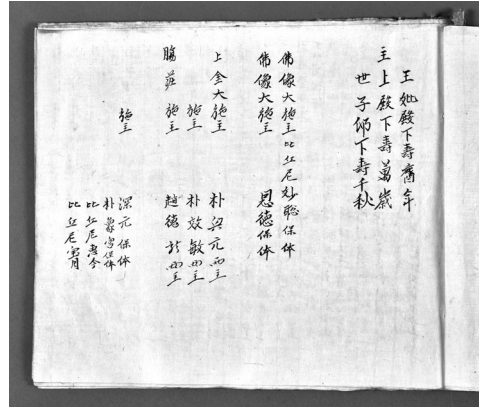 王妣殿下壽齊年
主上殿下壽萬歲
世子邸下壽千秋
佛像大施主比丘尼妙聡保体
佛像大施主 恩德保体
上金大施主 朴元兩主
施主 朴效敏兩主
腸莊 施主 趙德於兩主
施主 深元保体
朴蒙宮保体
比丘尼惠今
比丘尼寶月